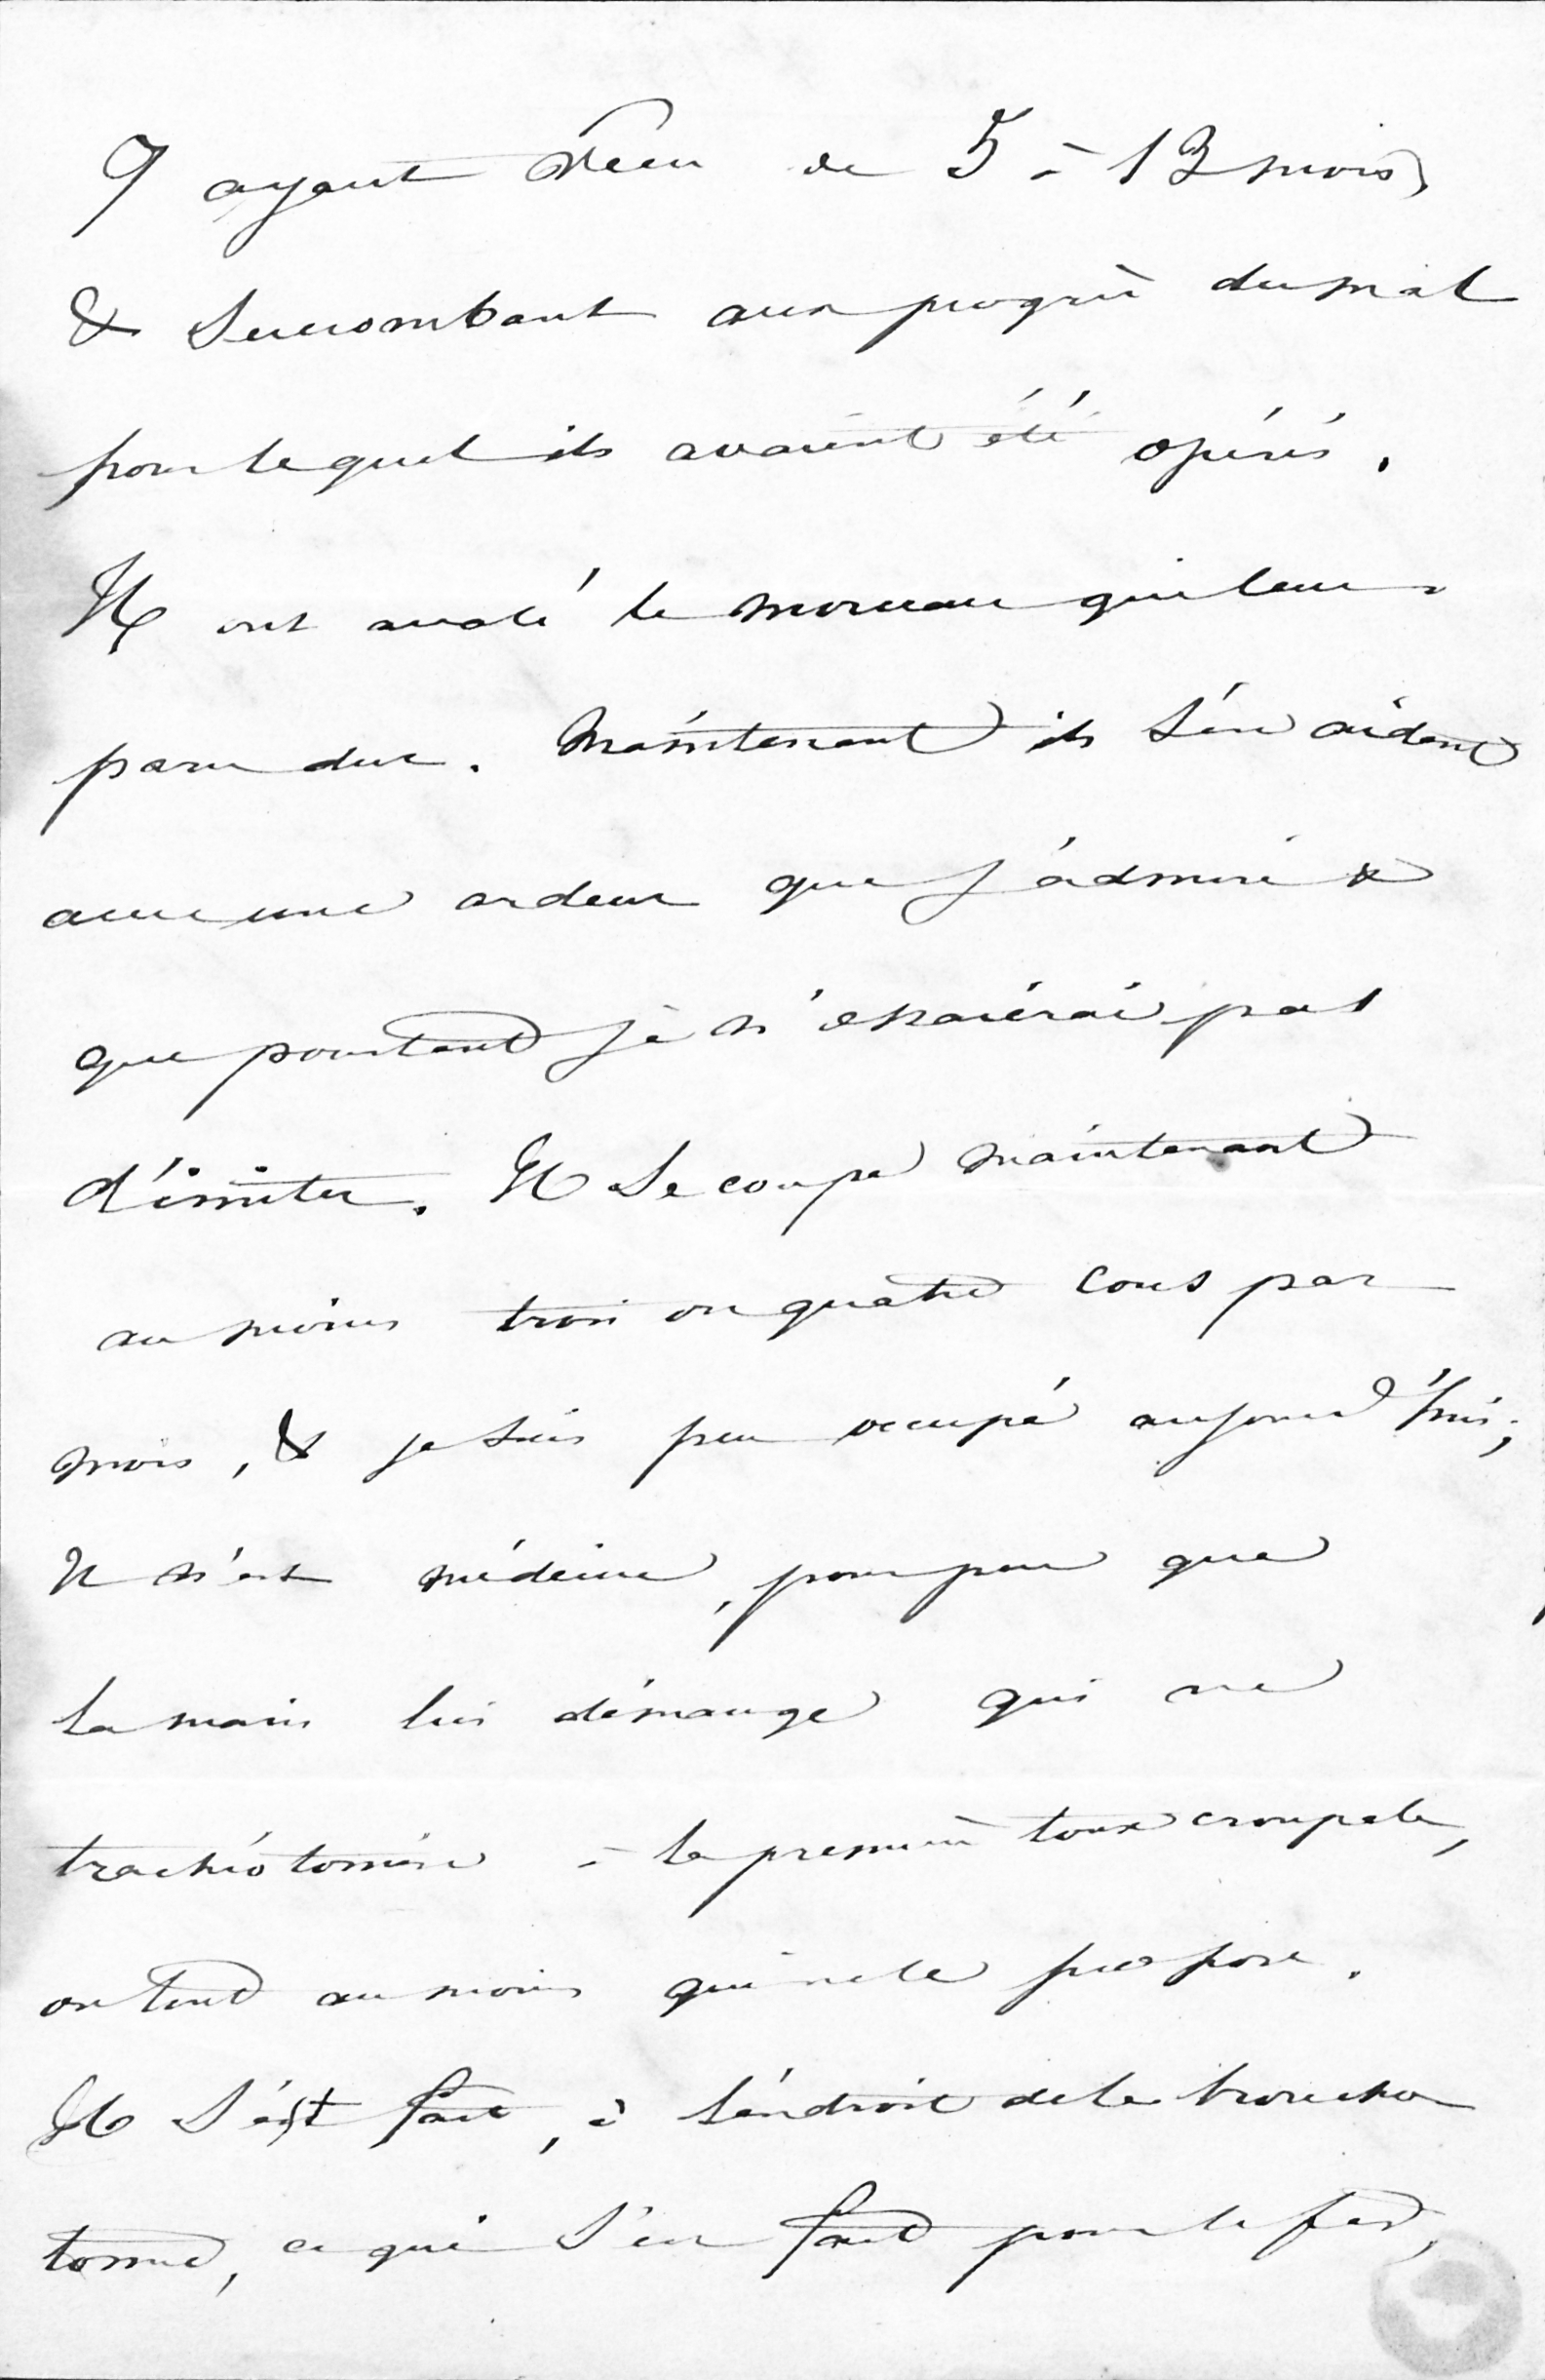 7 ayant vécu de 5 à 13 mois,
& succombant aux progrès du mal
pour lequel ils avaient été opérés.
Ils ont avalé le morceau qui leur a
paru dur. Maintenant ils s'en aident
avec une ardeur que j'admire &
que pourtant je n'essaierai pas
d'imiter. Il se coupe maintenant
au moins trois ou quatre cous par
mois, & je suis peu occupé aujourd'hui;
Il n'est médecin, pour peu que
la main lui démange qui ne
trachéotomise à la première toux croupale,
ou tout au moins qui ne le propose.
Il s'est fait, à l'endroit de la broncho
tomie, ce qui s'en fait pour le